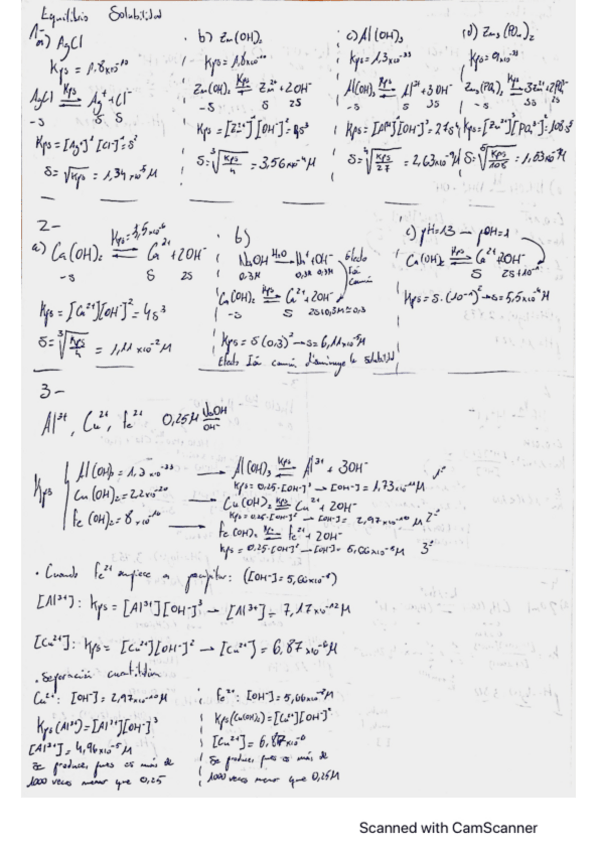 Equilibrio Solubilidad
1-
a) AgCl
Kps = 1,8x10⁻¹⁰
AgCl ⇌ Ag⁺ + Cl⁻
-s s s
Kps = [Ag⁺][Cl⁻] = s²
s = √Kps = 1,34x10⁻⁵ M
b) Zn(OH)₂
Kps = 1,8x10⁻¹⁰
Zn(OH)₂ ⇌ Zn²⁺ + 2OH⁻
-s s 2s
Kps = [Zn²⁺][OH⁻]² = 4s³
s = ∛(Kps/4) = 3,56x10⁻⁴ M
c) Al(OH)₃
Kps = 1,3x10⁻³³
Al(OH)₃ ⇌ Al³⁺ + 3OH⁻
-s s 3s
Kps = [Al³⁺][OH⁻]³ = 27s⁴
s = ⁴√(Kps/27) = 2,63x10⁻⁹ M
d) Zn₃(PO₄)₂
Zn₃(PO₄)₂ ⇌ 3Zn²⁺ + 2PO₄
-s 3s 2s
Kps = [Zn²⁺]³[PO₄³⁻]² = 108s⁵
s = ⁵√(Kps/108)
2-
a) Ca(OH)₂ ⇌ Ca²⁺ + 2OH⁻
-s s 2s
Kps = [Ca²⁺][OH⁻]² = 4s³
s = ∛(Kps/4) = 1,11x10⁻² M
b)
NaOH → Na⁺ + OH⁻
0,3M 0,3M 0,3M
Efecto
Ión
Común
Ca(OH)₂ ⇌ Ca²⁺ + 2OH⁻
-s s 2s+0,3M ≈ 0,3
Kps = s(0,3)² → s = 6,11x10⁻⁵ M
Efecto Ión común disminuye la solubilidad
c) pH=13 → pOH=1
Ca(OH)₂ ⇌ Ca²⁺ + 2OH⁻
s 2s+10⁻¹
Kps = s·(10⁻¹)² → s = 5,5x10⁻⁴ M
3-
Al³⁺, Cu²⁺, Fe²⁺ 0,25M NaOH
OH⁻
Kps
Al(OH)₃ = 1,3x10⁻³³ → Al(OH)₃ ⇌ Al³⁺ + 3OH⁻
Kps = 0,25·[OH⁻]³ → [OH⁻] = 1,73x10⁻¹¹ M 1º
Cu(OH)₂ = 2,2x10⁻²⁰ → Cu(OH)₂ ⇌ Cu²⁺ + 2OH⁻
Kps = 0,25·[OH⁻]² → [OH⁻] = 2,97x10⁻¹⁰ M 2º
Fe(OH)₂ = 8x10⁻¹⁶ → Fe(OH)₂ ⇌ Fe²⁺ + 2OH⁻
Kps = 0,25·[OH⁻]² → [OH⁻] = 5,66x10⁻⁸ M 3º
· Cuando Fe²⁺ empiece a precipitar: ([OH⁻] = 5,66x10⁻⁸)
[Al³⁺]: Kps = [Al³⁺][OH⁻]³ → [Al³⁺] = 7,17x10⁻¹² M
[Cu²⁺]: Kps = [Cu²⁺][OH⁻]² → [Cu²⁺] = 6,87x10⁻⁶ M
· Separación cuantitativa
Cu²⁺: [OH⁻] = 2,97x10⁻¹⁰ M
Kps(Al³⁺) = [Al³⁺][OH⁻]³
[Al³⁺] = 4,96x10⁻⁵ M
Se produce, pues es más de
1000 veces menor que 0,25
Fe²⁺: [OH⁻] = 5,66x10⁻⁸ M
Kps(Cu(OH)₂) = [Cu²⁺][OH⁻]²
[Cu²⁺] = 6,87x10⁻⁶
Se produce, pues es más de
1000 veces menor que 0,25M
Scanned with CamScanner